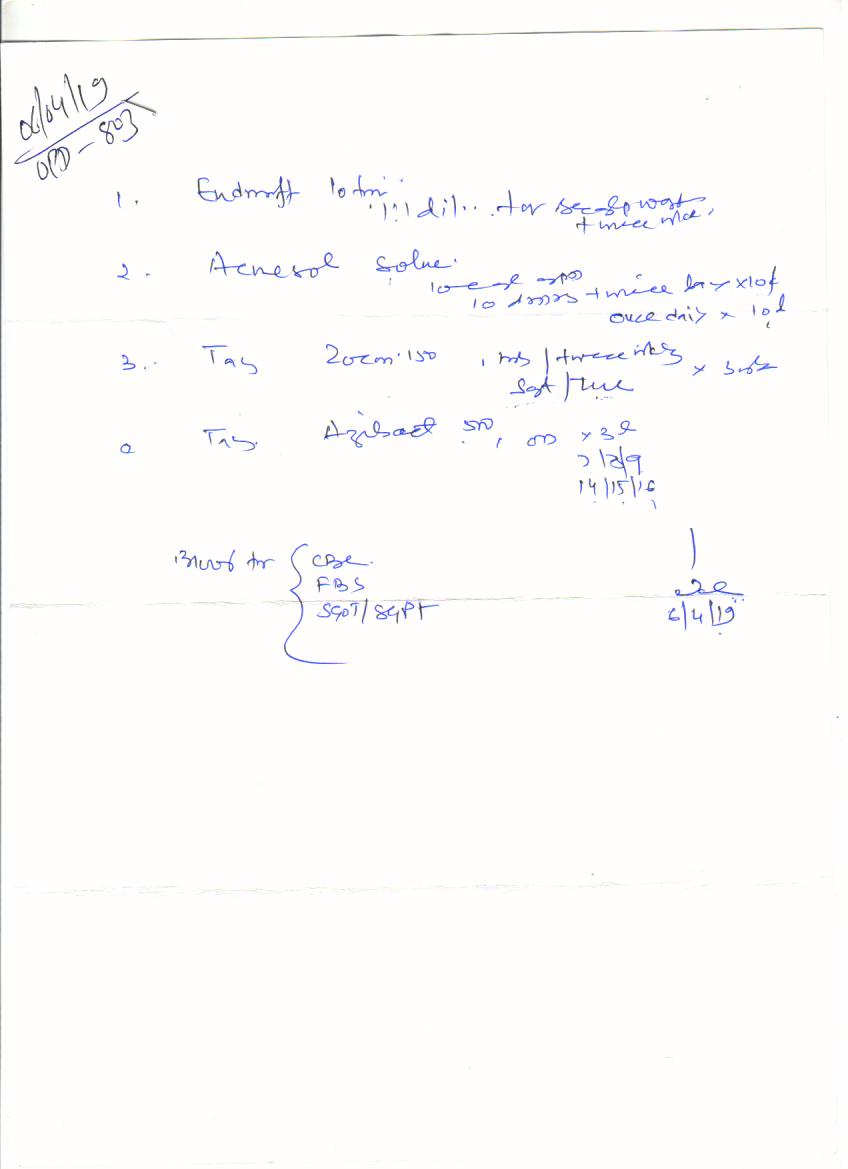 06/04/19
OPD - 803
1. Endmoft lotn
1:1 dil... for scalp wash
twice wkly
2. Acnesol solun.
local app
10 drops twice day x 10d
once daily x 10d
3. Tab Zocon 150, tab / twice wkly x
Sat / Tue
Tab. Azibact 500, OD x 3d
7/8/9
14/15/16
Blood for { CBC
FBS
SGOT/SGPT
6/4/19